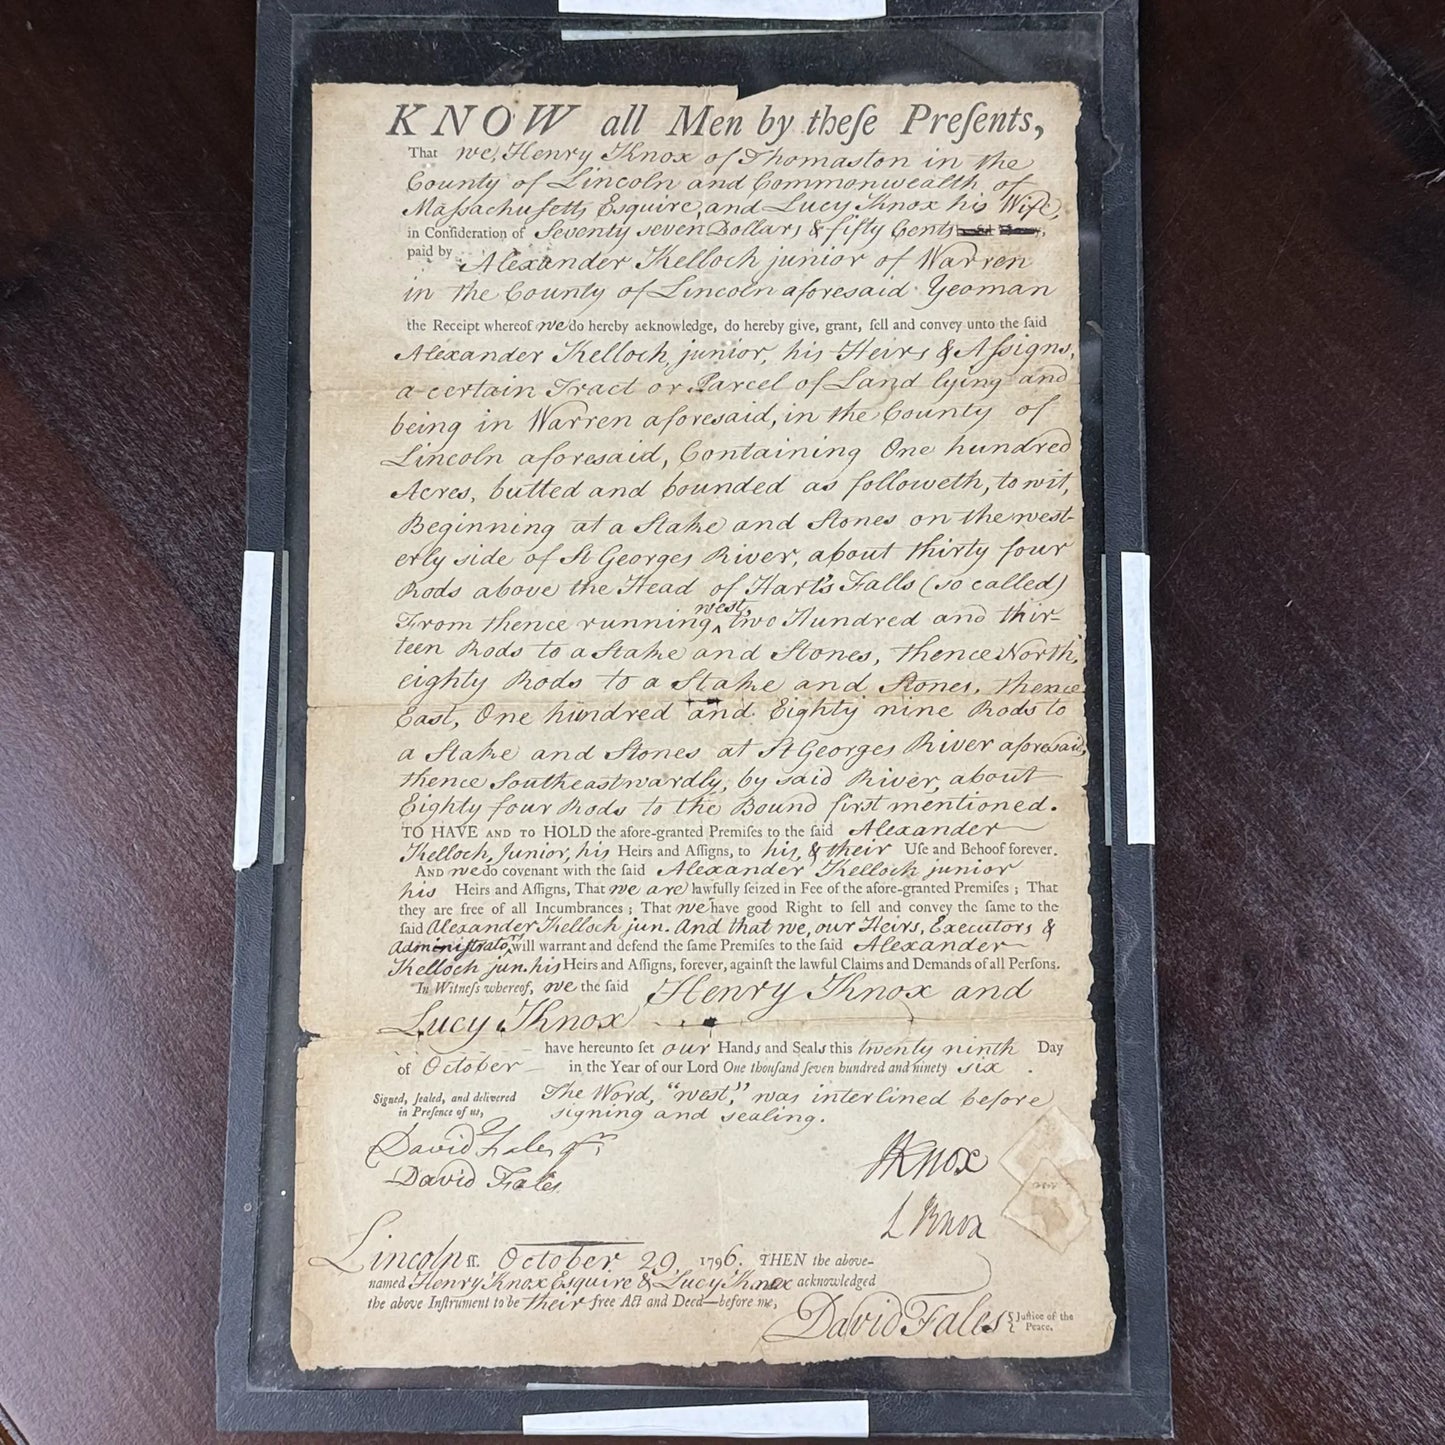 KNOW all Men by theſe Preſents,
That we, Henry Knox of Thomaston in the
County of Lincoln and Commonwealth of
Maſsachuſetts Esquire, and Lucy Knox his Wife,
in Conſideration of Seventy seven Dollars & fifty Cents
paid by Alexander Kelloch junior of Warren
in the County of Lincoln aforesaid Yeoman
the Receipt whereof we do hereby acknowledge, do hereby give, grant, ſell and convey unto the ſaid
Alexander Kelloch, junior, his Heirs & Aſsigns,
a certain Tract or Parcel of Land lying and
being in Warren aforesaid, in the County of
Lincoln aforesaid, Containing One hundred
Acres, butted and bounded as followeth, to wit,
Beginning at a Stake and Stones on the west-
erly side of St Georges River, about thirty four
Rods above the Head of Hart's Falls (so called)
From thence running ‸ west, two Hundred and thir-
teen Rods to a Stake and Stones, thence North,
eighty Rods to a Stake and Stones, thence
East, One hundred and Eighty nine Rods to
a Stake and Stones at St Georges River aforesaid,
thence Southeastwardly, by said River, about
Eighty four Rods to the Bound first mentioned.
TO HAVE AND TO HOLD the afore-granted Premiſes to the ſaid Alexander
Kelloch, Junior, his Heirs and Aſſigns, to his, & their Uſe and Behoof forever.
AND we do covenant with the ſaid Alexander Kelloch junior
his Heirs and Aſſigns, That we are lawfully ſeized in Fee of the afore-granted Premiſes; That
they are free of all Incumbrances; That we have good Right to ſell and convey the ſame to the
ſaid Alexander Kelloch jun. And that we, our Heirs, Executors &
Administrators will warrant and defend the ſame Premiſes to the ſaid Alexander
Kelloch jun. his Heirs and Aſſigns, forever, againſt the lawful Claims and Demands of all Perſons.
In Witneſs whereof, we the ſaid Henry Knox and
Lucy Knox
have hereunto ſet our Hands and Seals this twenty ninth Day
of October in the Year of our Lord One thouſand ſeven hundred and ninety six.
Signed, ſealed, and delivered in Preſence of us,
The Word, "west," was interlined before
signing and sealing.
David Fales jr
David Fales
HKnox
L Knox
Lincoln ſſ. October 29, 1796. THEN the above-
named Henry Knox Esquire & Lucy Knox acknowledged
the above Inſtrument to be their free Act and Deed—before me,
David Fales } Juſtice of the Peace.